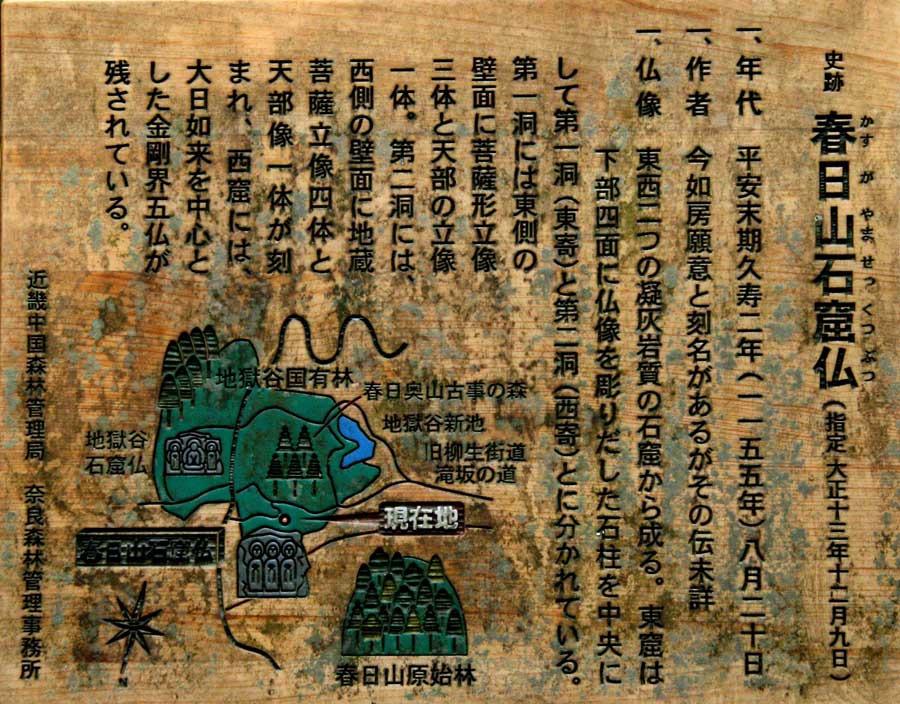 史跡 春日山石窟仏（指定 大正十三年十二月九日）
かすがやませっくつぶつ
一、年代 平安末期久寿二年（一一五五年）八月二十日
一、作者 今如房願意と刻名があるがその伝未詳
一、仏像 東西二つの凝灰岩質の石窟から成る。東窟は
下部四面に仏像を彫りだした石柱を中央に
して第一洞（東寄）と第二洞（西寄）とに分かれている。
第一洞には東側の
壁面に菩薩形立像
三体と天部の立像
一体。第二洞には、
西側の壁面に地蔵
菩薩立像四体と
天部像一体が刻
まれ、西窟には、
大日如来を中心と
した金剛界五仏が
残されている。
近畿中国森林管理局 奈良森林管理事務所
地獄谷国有林
春日奥山古事の森
地獄谷新池
旧柳生街道
滝坂の道
地獄谷
石窟仏
現在地
春日山石窟仏
春日山原始林
N